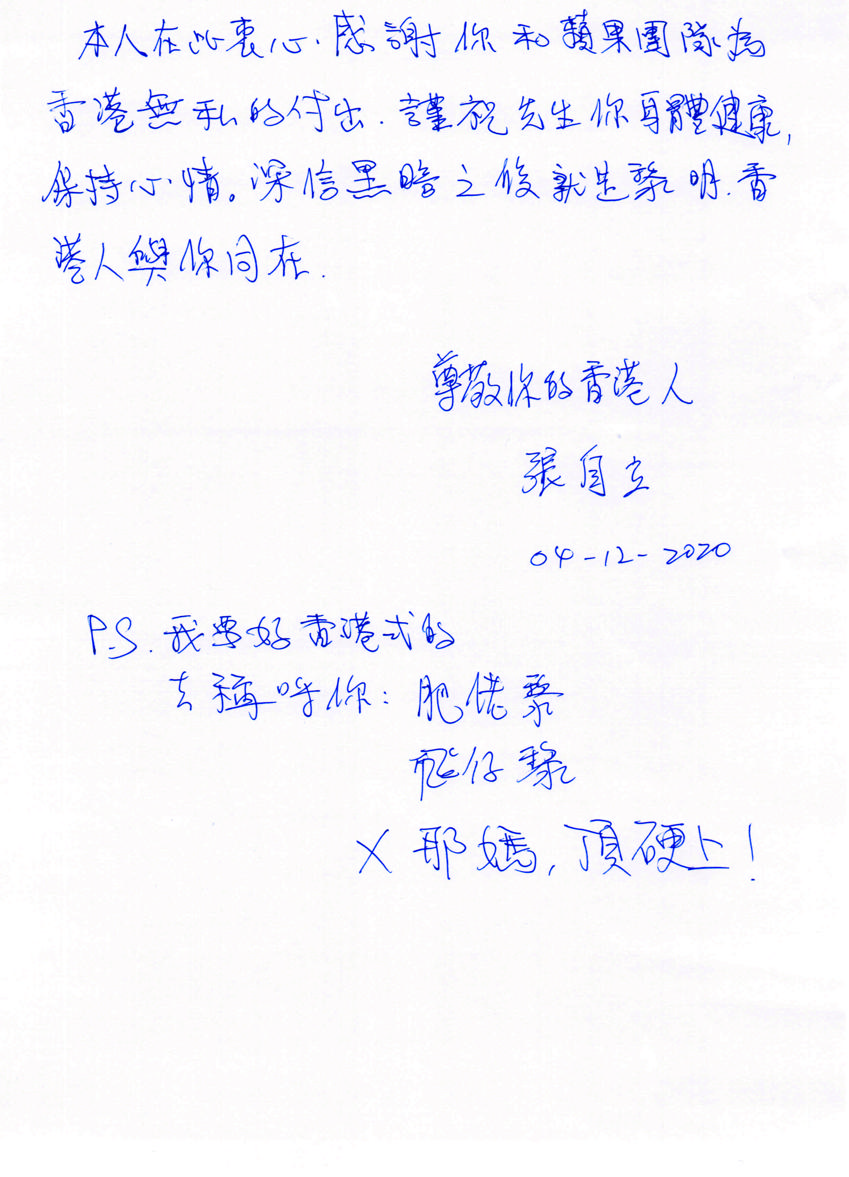 本人在此衷心感謝你和蘋果團隊為
香港無私的付出.謹祝先生你身體健康,
保持心情。深信黑暗之後就是黎明.香
港人與你同在.
尊敬你的香港人
張自立
04-12-2020
P.S.我要好香港式的
去稱呼你:肥佬黎
肥仔黎
X耶媽,頂硬上!